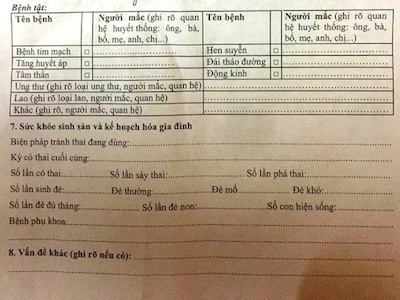 Bệnh tật:
Tên bệnh Người mắc (ghi rõ quan hệ huyết thống: ông, bà, bố, mẹ, anh, chị...) Tên bệnh Người mắc (ghi rõ quan hệ huyết thống: ông, bà, bố, mẹ, anh, chị...)
Bệnh tim mạch □ Hen suyễn □
Tăng huyết áp □ Đái tháo đường □
Tâm thần □ Động kinh □
Ung thư (ghi rõ loại ung thư, người mắc, quan hệ)
Lao (ghi rõ loại lao, người mắc, quan hệ)
Khác (ghi rõ, người mắc, quan hệ)
7. Sức khỏe sinh sản và kế hoạch hóa gia đình
Biện pháp tránh thai đang dùng:
Kỳ có thai cuối cùng:
Số lần có thai: Số lần sảy thai: Số lần phá thai:
Số lần sinh đẻ: Đẻ thường: Đẻ mổ Đẻ khó:
Số lần đẻ đủ tháng: Số lần đẻ non: Số con hiện sống:
Bệnh phụ khoa:
8. Vấn đề khác (ghi rõ nếu có):